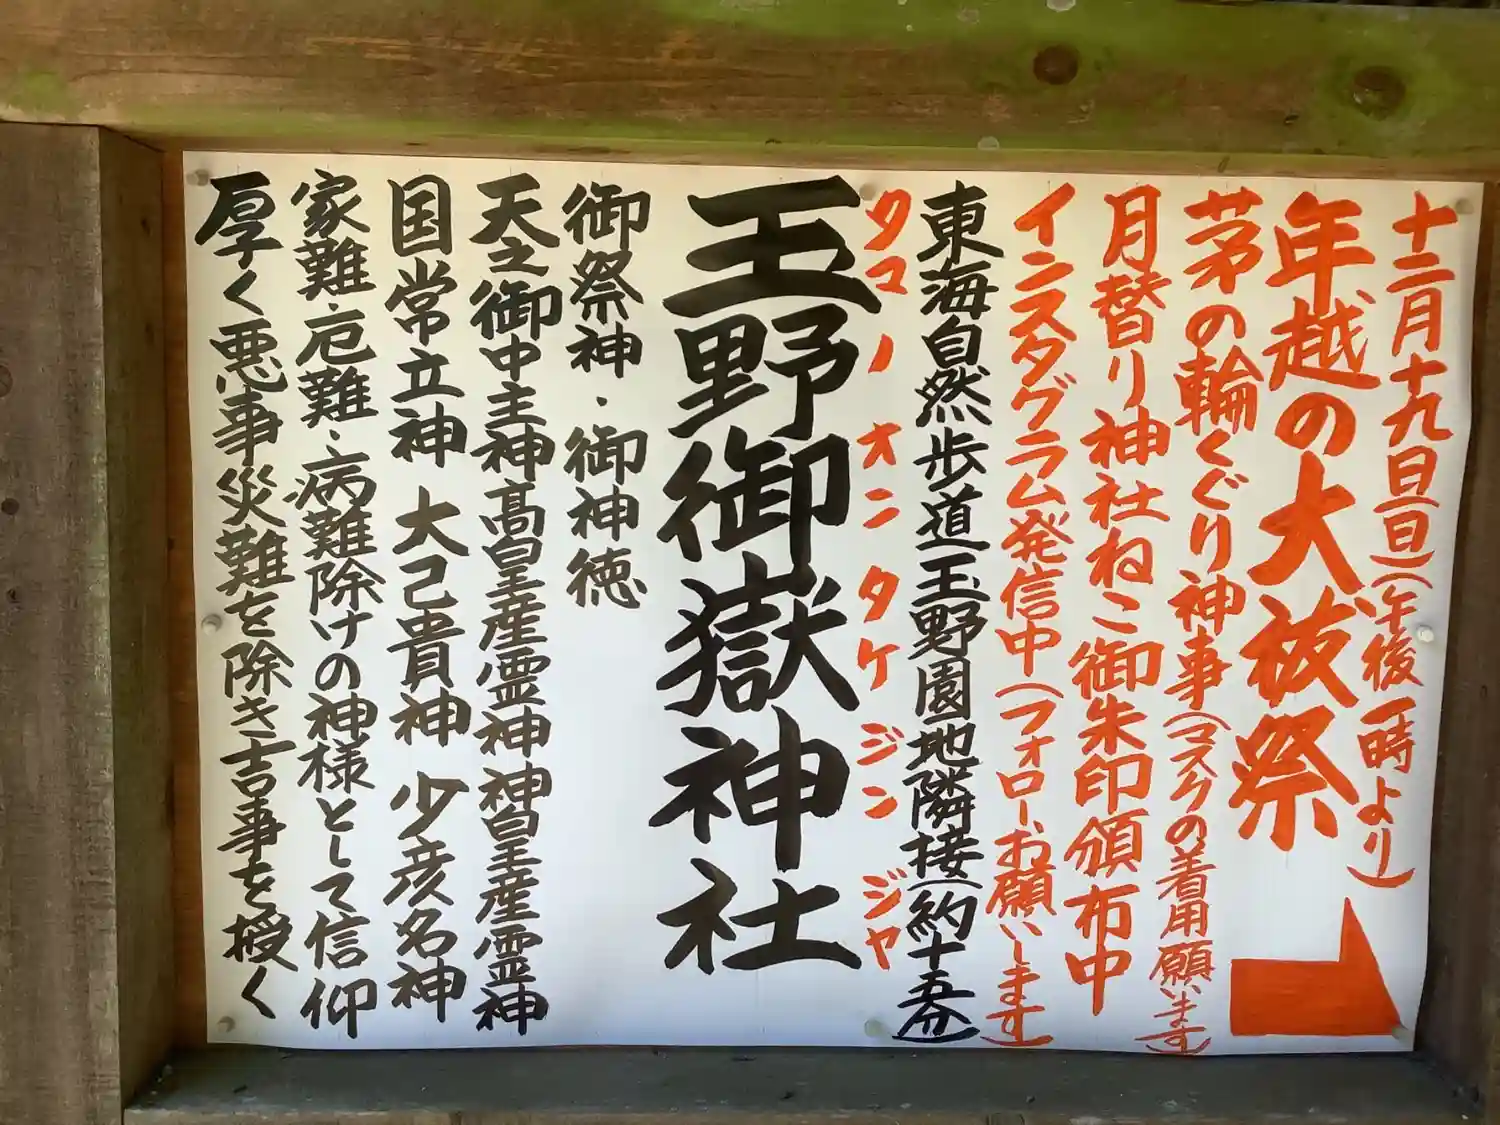 十二月十九日(日)(午後一時より)
年越の大祓祭
茅の輪くぐり神事(マスクの着用願います)
月替り神社ねこ御朱印頒布中
インスタグラム発信中(フォローお願いします)
東海自然歩道玉野園地隣接(約十五分)
タマノオンタケジンジャ
玉野御嶽神社
御祭神・御神徳
天之御中主神高皇産霊神神皇産霊神
国常立神 大己貴神 少彦名神
家難・厄難・病難除けの神様として信仰
厚く悪事災難を除き吉事を授く